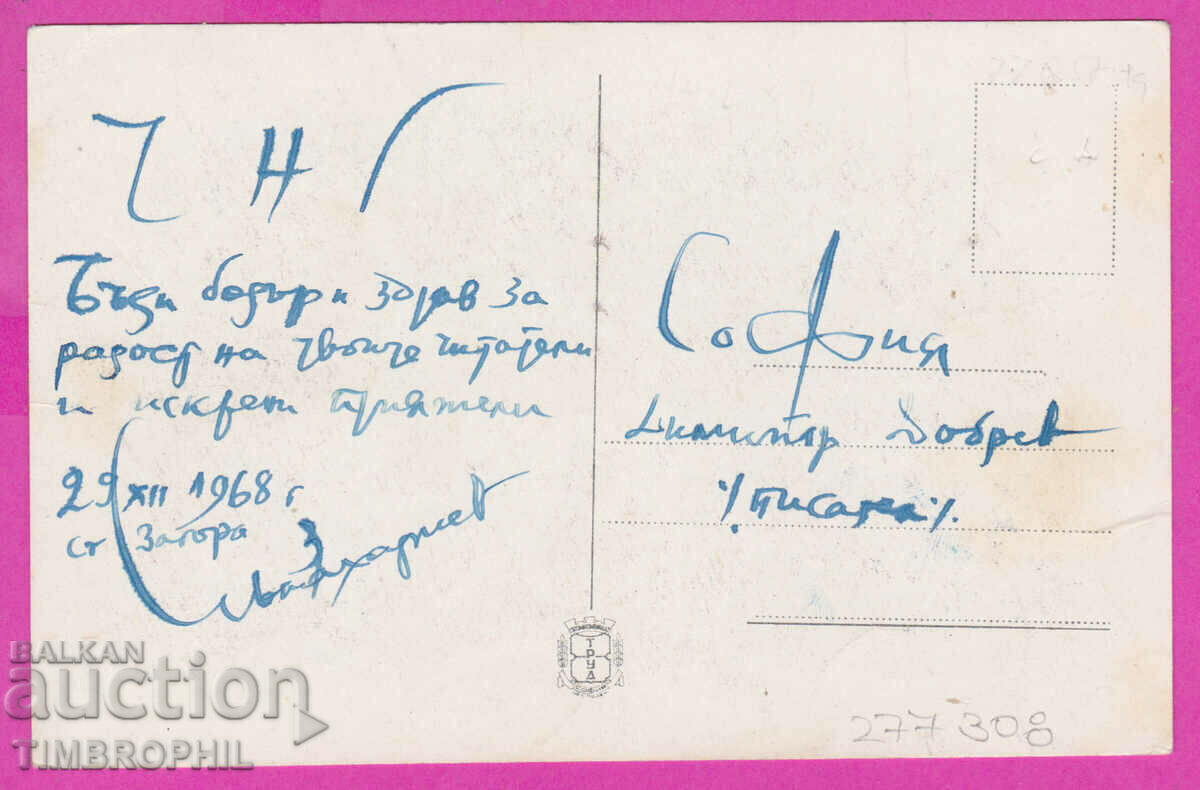 Ч Н Г
Бъди бодър и здрав за
радост на твоите читатели
и искрени приятели
29 XII 1968 г
Ст Загора
София
Димитър Добрев
/писател/
ТРУД
277308
BALKAN
auction
TIMBROPHIL